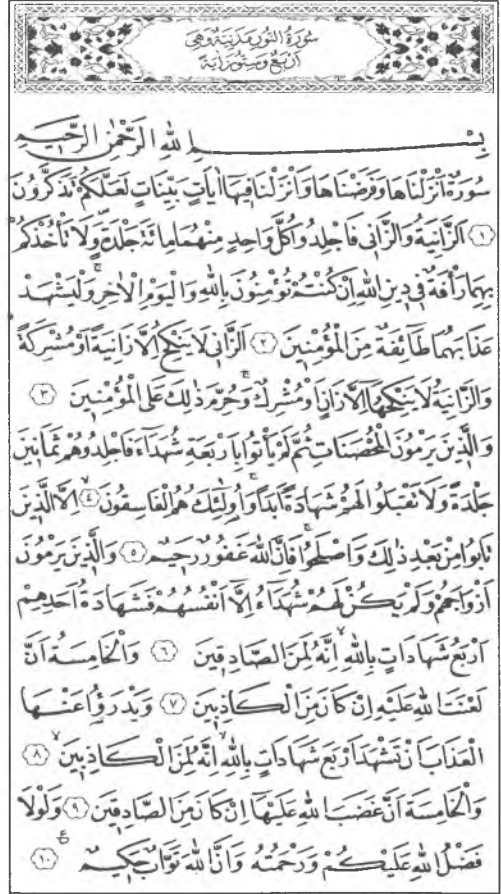 سُورَةُ النُّورِ مَدَنِيَّةٌ وَهِيَ
اَرْبَعٌ وَسِتُّونَ اٰيَةً
بِسْمِ اللّٰهِ الرَّحْمٰنِ الرَّحِيمِ
سُورَةٌ اَنْزَلْنَاهَا وَفَرَضْنَاهَا وَاَنْزَلْنَا فِيهَا اٰيَاتٍ بَيِّنَاتٍ لَعَلَّكُمْ تَذَكَّرُونَ
﴿١﴾ اَلزَّانِيَةُ وَالزَّانِي فَاجْلِدُوا كُلَّ وَاحِدٍ مِنْهُمَا مِائَةَ جَلْدَةٍ وَلَا تَأْخُذْكُمْ
بِهِمَا رَأْفَةٌ فِي دِينِ اللّٰهِ اِنْ كُنْتُمْ تُؤْمِنُونَ بِاللّٰهِ وَالْيَوْمِ الْاٰخِرِ وَلْيَشْهَدْ
عَذَابَهُمَا طَائِفَةٌ مِنَ الْمُؤْمِنِينَ ﴿٢﴾ اَلزَّانِي لَا يَنْكِحُ اِلَّا زَانِيَةً اَوْ مُشْرِكَةً
وَالزَّانِيَةُ لَا يَنْكِحُهَا اِلَّا زَانٍ اَوْ مُشْرِكٌ وَحُرِّمَ ذٰلِكَ عَلَى الْمُؤْمِنِينَ ﴿٣﴾
وَالَّذِينَ يَرْمُونَ الْمُحْصَنَاتِ ثُمَّ لَمْ يَأْتُوا بِاَرْبَعَةِ شُهَدَاءَ فَاجْلِدُوهُمْ ثَمَانِينَ
جَلْدَةً وَلَا تَقْبَلُوا لَهُمْ شَهَادَةً اَبَدًا وَاُولٰئِكَ هُمُ الْفَاسِقُونَ ﴿٤﴾ اِلَّا الَّذِينَ
تَابُوا مِنْ بَعْدِ ذٰلِكَ وَاَصْلَحُوا فَاِنَّ اللّٰهَ غَفُورٌ رَحِيمٌ ﴿٥﴾ وَالَّذِينَ يَرْمُونَ
اَزْوَاجَهُمْ وَلَمْ يَكُنْ لَهُمْ شُهَدَاءُ اِلَّا اَنْفُسُهُمْ فَشَهَادَةُ اَحَدِهِمْ
اَرْبَعُ شَهَادَاتٍ بِاللّٰهِ اِنَّهُ لَمِنَ الصَّادِقِينَ ﴿٦﴾ وَالْخَامِسَةُ اَنَّ
لَعْنَتَ اللّٰهِ عَلَيْهِ اِنْ كَانَ مِنَ الْكَاذِبِينَ ﴿٧﴾ وَيَدْرَؤُا عَنْهَا
الْعَذَابَ اَنْ تَشْهَدَ اَرْبَعَ شَهَادَاتٍ بِاللّٰهِ اِنَّهُ لَمِنَ الْكَاذِبِينَ ﴿٨﴾
وَالْخَامِسَةَ اَنَّ غَضَبَ اللّٰهِ عَلَيْهَا اِنْ كَانَ مِنَ الصَّادِقِينَ ﴿٩﴾ وَلَوْلَا
فَضْلُ اللّٰهِ عَلَيْكُمْ وَرَحْمَتُهُ وَاَنَّ اللّٰهَ تَوَّابٌ حَكِيمٌ ﴿١٠﴾